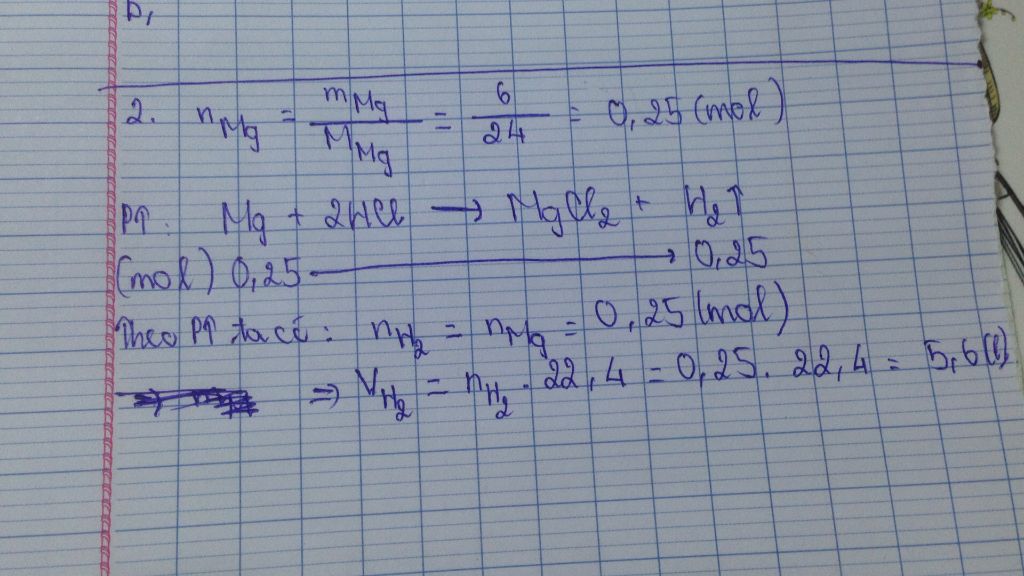 b,
2. n_Mg = m_Mg / M_Mg = 6 / 24 = 0,25 (mol)
PT: Mg + 2HCl → MgCl₂ + H₂↑
(mol) 0,25 → 0,25
Theo PT ta có: n_H₂ = n_Mg = 0,25 (mol)
⇒ V_H₂ = n_H₂ . 22,4 = 0,25. 22,4 = 5,6(l)